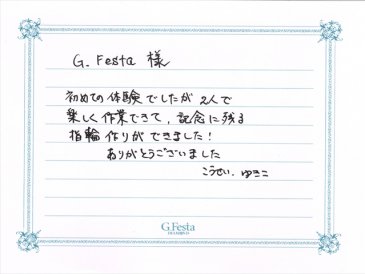 G. Festa 様
初めての体験でしたが 2人で
楽しく作業できて、記念に残る
指輪作りができました!
ありがとうございました
こうせい. ゆきこ
G.Festa